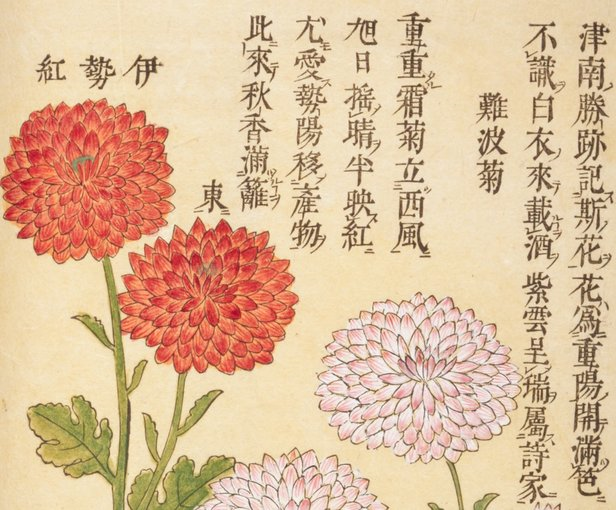 津南勝跡記斯花花為重陽開滿笆
不識白衣來載酒紫雲呈瑞屬詩家
難波菊
重重霜菊立西風
旭日搖晴半映紅
尤愛勢陽移產物
此來秋香滿籬
東
伊勢紅